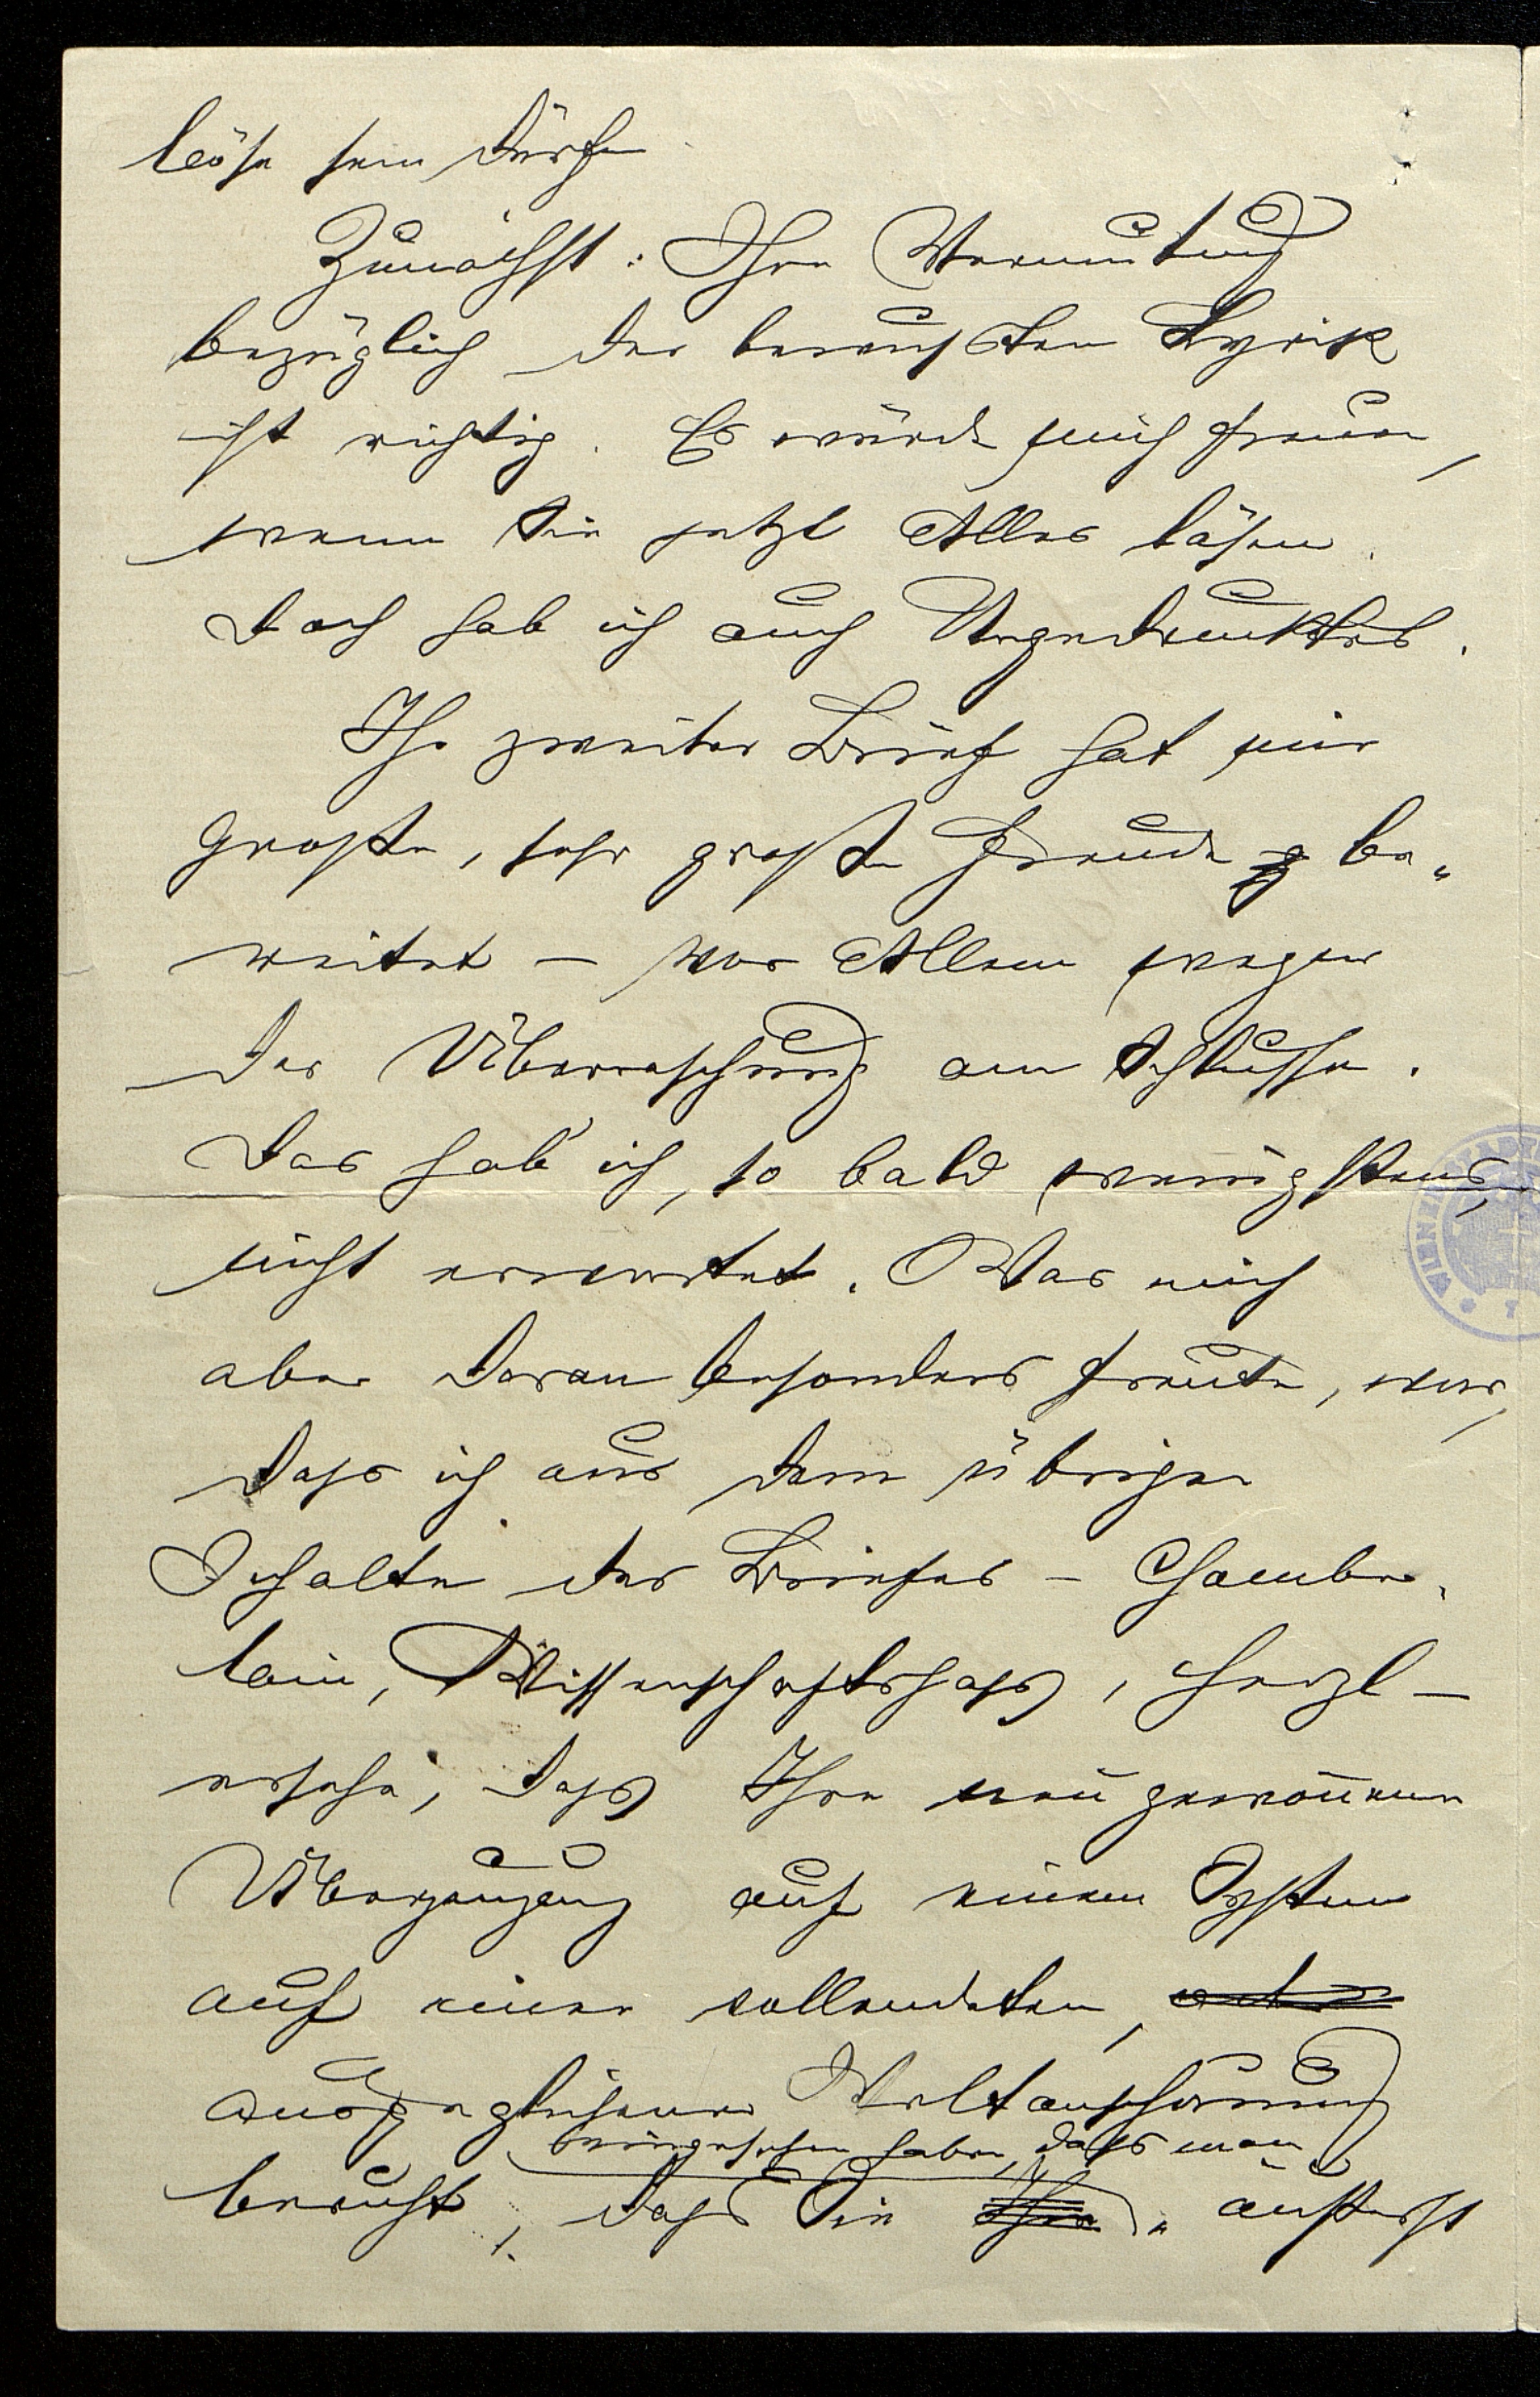 böse sein dürfen.
Zunächst: Ihre Vermutung
bezüglich der bewußten Lyrik
ist richtig. Es würde mich freuen,
wenn Sie jetzt Alles läsen.
Doch hab ich auch Ungedrucktes.
Ihr zweiter Brief hat mir
große, sehr große Freude be-
reitet – vor Allem wegen
der Überraschung am Schlusse.
Das hab' ich, so bald wenigstens,
nicht erwartet. Was mich
aber daran besonders freute, war,
dass ich aus dem übrigen
Inhalte des Briefes – Chamber-
lain, Wissenschaftshass, Herzl –
ersehe, dass Ihre neugewonnene
Überzeugung auf einem System
auf einer vollendeten,
ausgeglichenen Weltanschauung
eingesehen haben, dass man
beruht, dass Sie äußerst